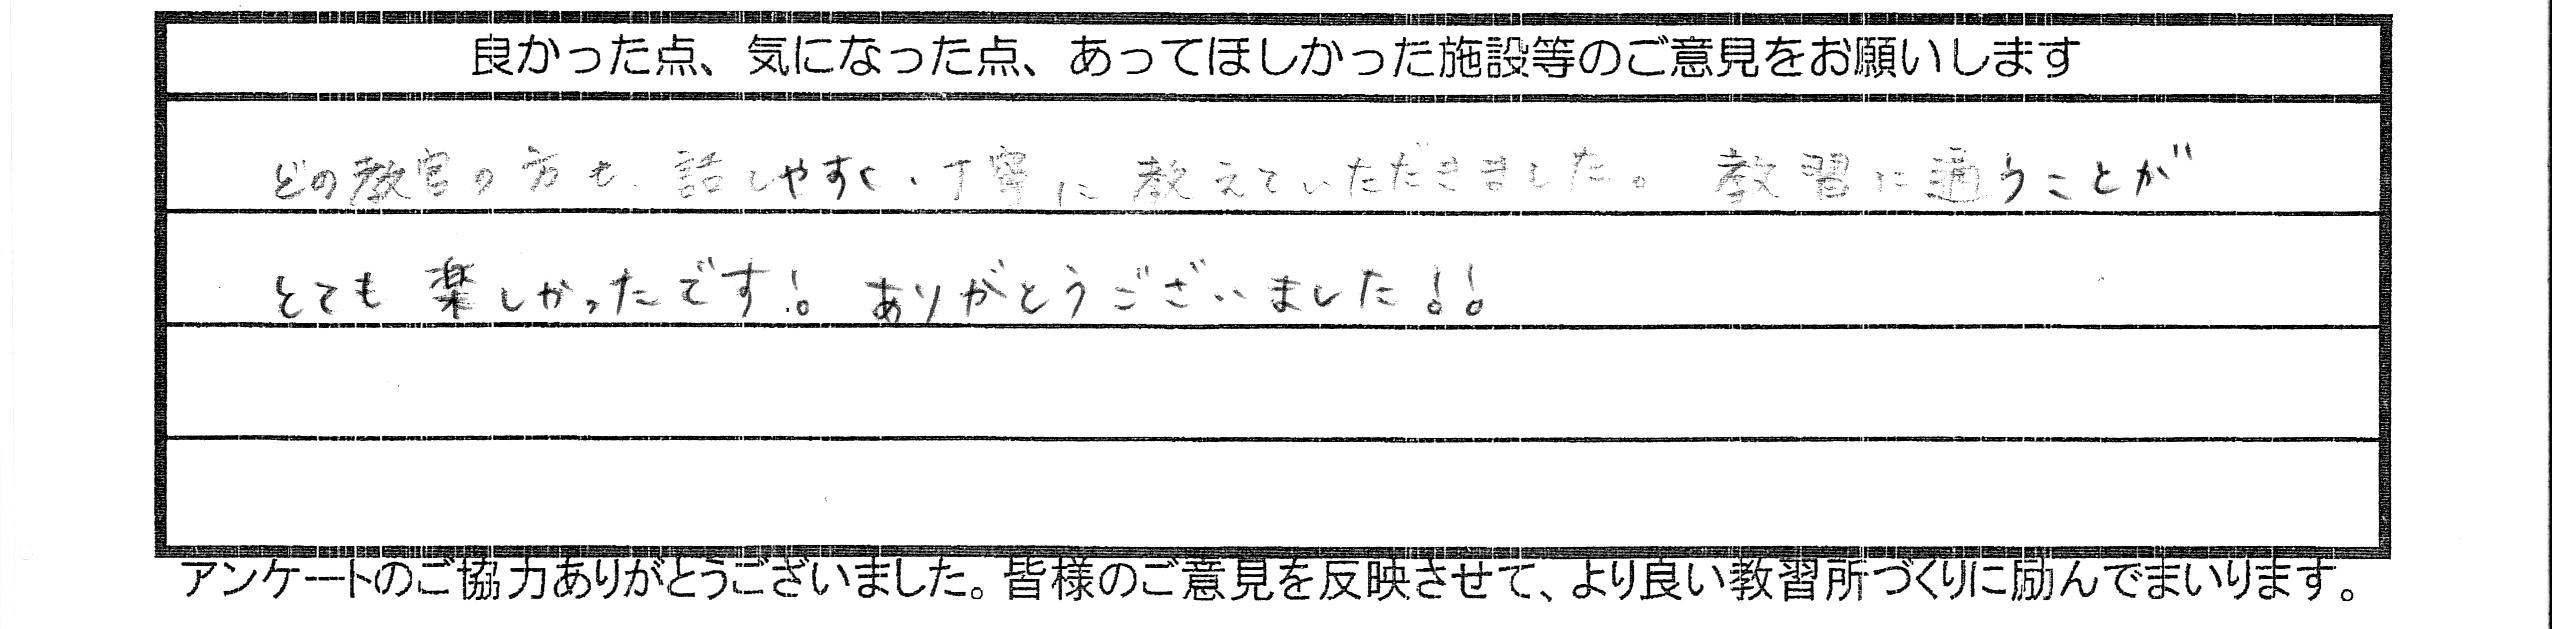 良かった点、気になった点、あってほしかった施設等のご意見をお願いします
どの教官の方も、話しやすく、丁寧に教えていただきました。教習に通うことが
とても楽しかったです!。ありがとうございました!!
アンケートのご協力ありがとうございました。皆様のご意見を反映させて、より良い教習所づくりに励んでまいります。